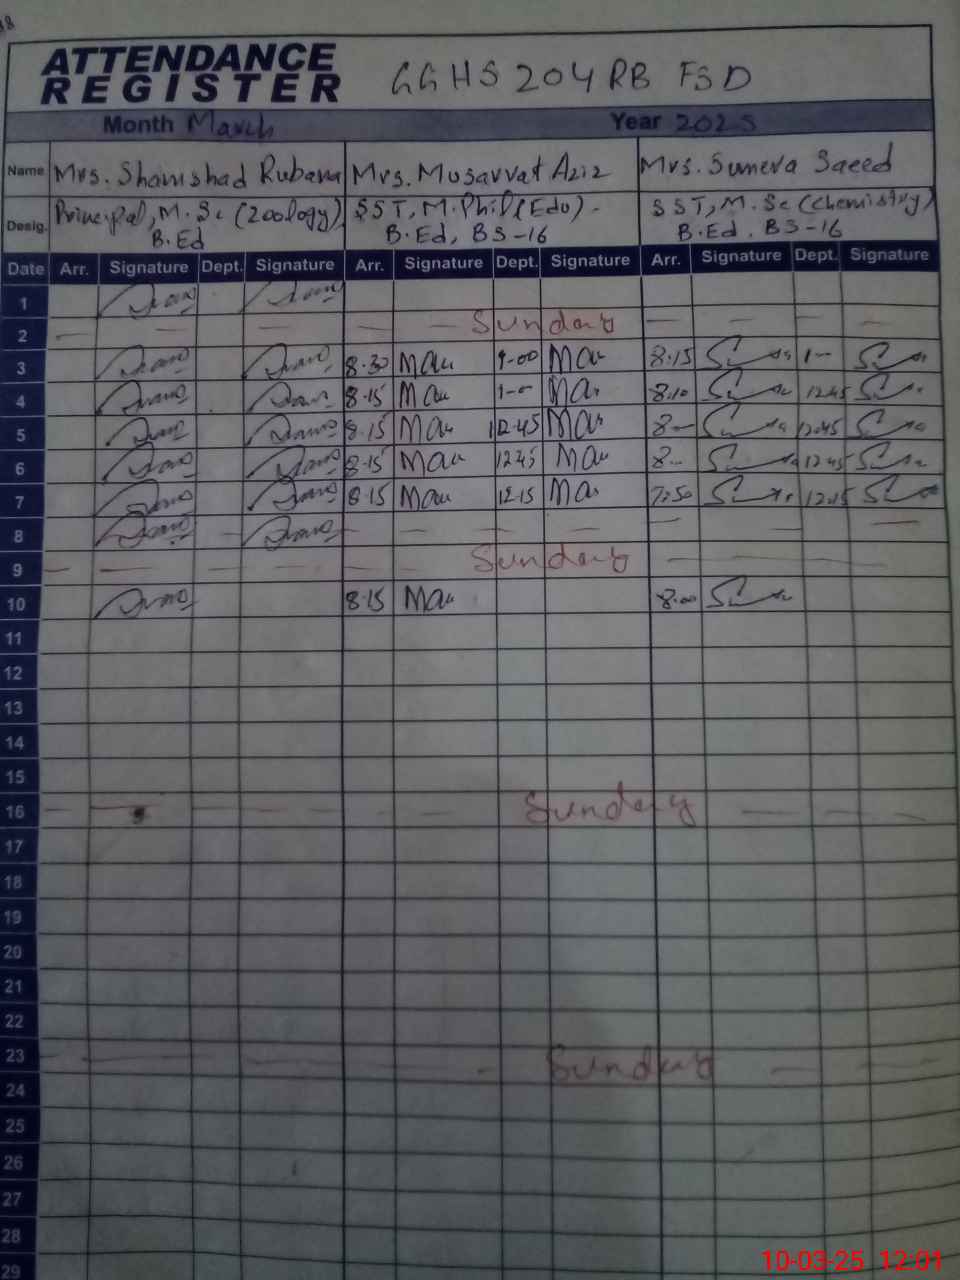 ATTENDANCE REGISTER GGHS 204 RB FSD
Month March Year 2025
Name Mrs. Shamshad Rubana Mrs. Musarrat Aziz Mrs. Sumera Saeed
Desig. Principal, M.Sc (Zoology), SST, M.Phil (Edu). SST, M.Sc (Chemistry)
B.Ed B.Ed, BS-16 B.Ed. BS-16
Date Arr. Signature Dept. Signature Arr. Signature Dept. Signature Arr. Signature Dept. Signature
1
2 Sunday
3 8.30 1-00 8.15 1-
4 8.15 1- 8.10 12.45
5 8.15 12.45 8- 12.45
6 8.15 12.45 8- 12.45
7 8.15 12.15 7.50 12.15
8
9 Sunday
10 8.15 8.00
11
12
13
14
15
16 Sunday
17
18
19
20
21
22
23 Sunday
24
25
26
27
28
29
10-03-25 12:01